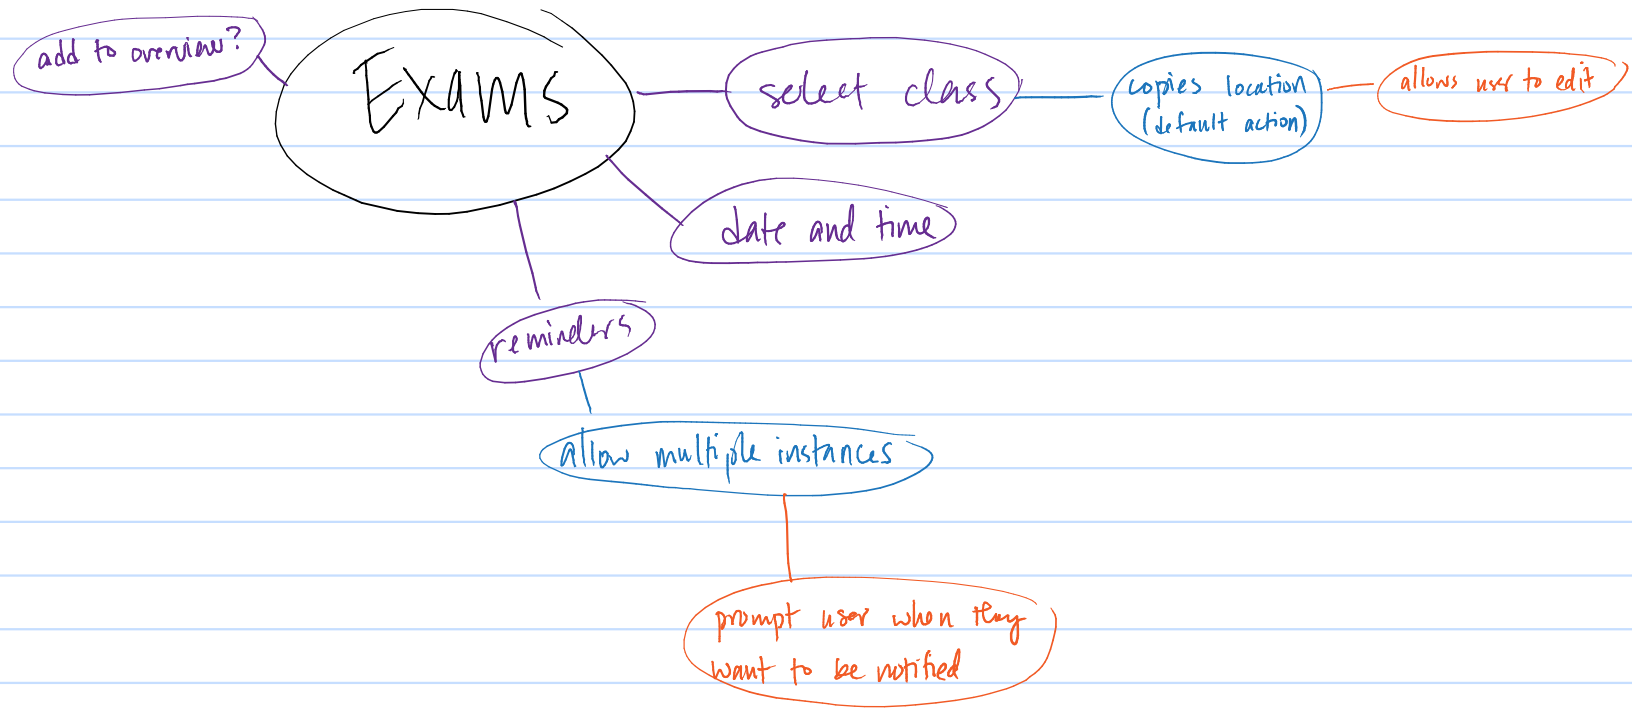 add to overview?
Exams
select class
copies location
(default action)
allows user to edit
date and time
reminders
allow multiple instances
prompt user when they
want to be notified